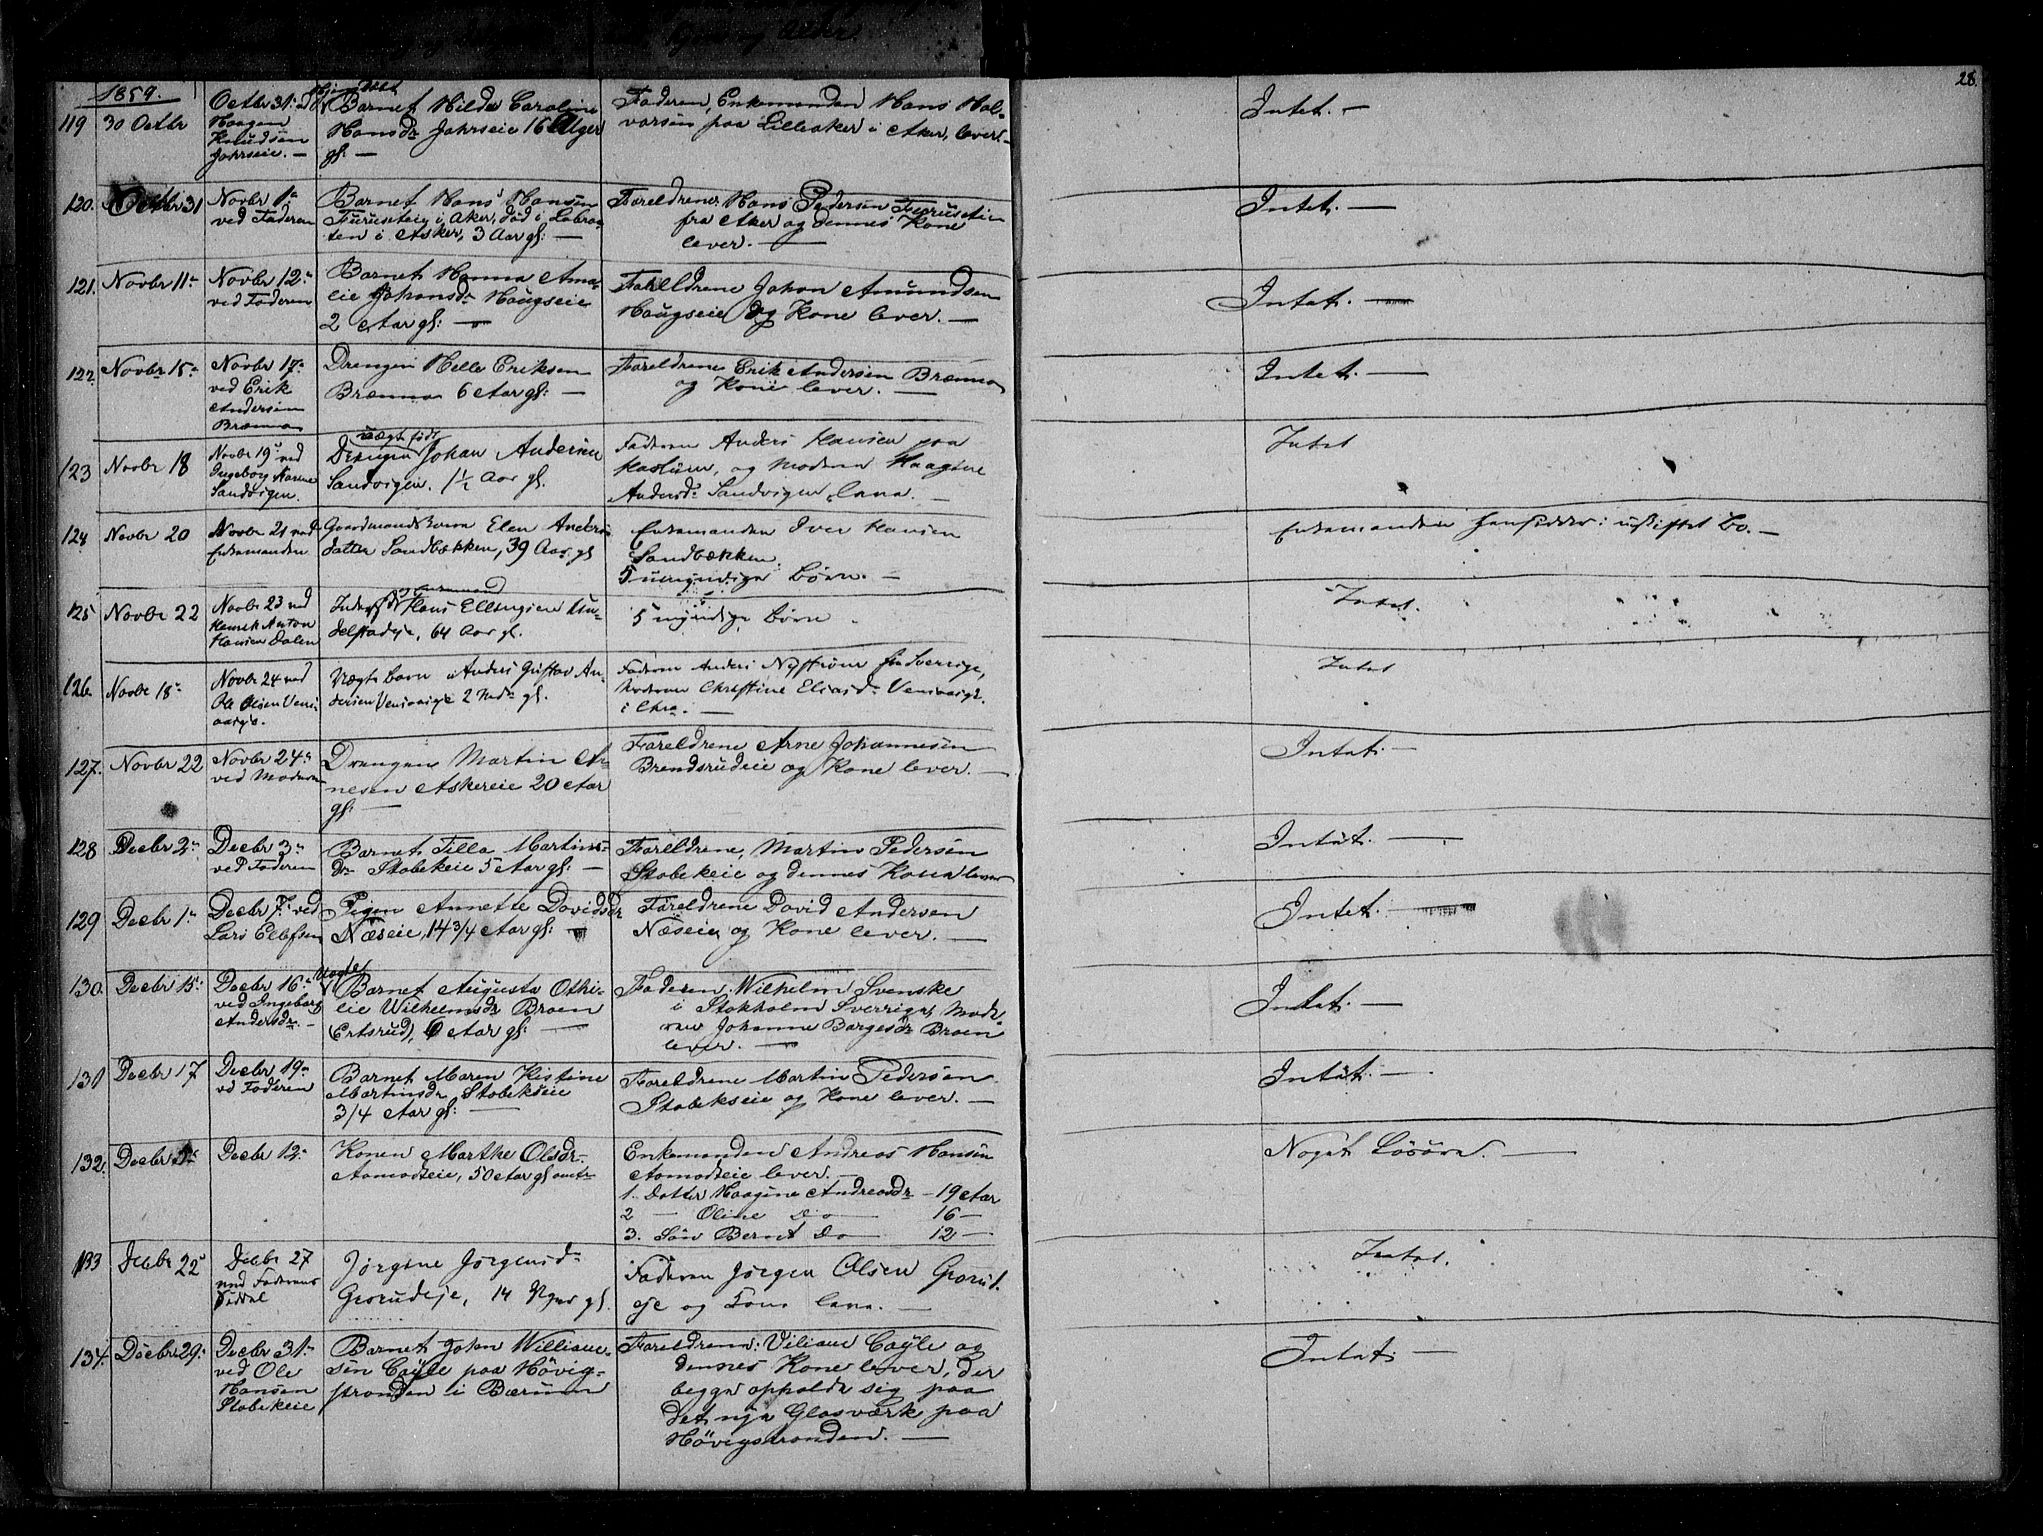 28.
1859.
119 30 Octbr
Octbr 31. 
Haagen
Knudsen
Jahrseie. —
Barnet Hilda Caroline
Hansdr Jahrseie 16 Uger
gl. —
Faderen, Enkemanden Hans Hal-
varsen paa Lilleaker i Aker, lever. —
Intet. —
120. Octbr 31
Novbr 1.
ved Faderen
Barnet Hans Hansen
Furusteig i Aker, død i
i Asker, 3 Aar gl: —
Forældrene Hans Pedersen
fra Aker og dennes Kone
lever. —
Intet. —
121. Novbr 11
Novbr 12.
ved Faderen
Barnet Hanna Ama-
lie Johansdr Haugseie
2 Aar gl: —
Forældrene Johan Amundsen
Haugseie og Kone lever. —
Intet. —
122. Novbr 15
Novbr 17.
ved Erik
Andersen
Brænna
Drengen Helle Eriksen
Brænna 6 Aar gl: —
Forældrene Erik Andersen Brænna
og Kone lever. —
Intet. —
123 Novbr 18
Novbr 19 ved
Ingeborg Karine
Sandvigen.
uægte født
Drengen Johan Andersen
Sandvigen. 1½ Aar gl.
Faderen Anders Hansen paa
Haslum, og Moderen Haagine
Andersdr Sandvigen leve. —
Intet
124 Novbr 20
Novbr 21 ved
Enkemanden
Gaardmandskone Elen Anders
datter Sandbækken, 39 Aar gl
Enkemanden Iver Hansen
Sandbækken.
5 umyndige Børn. —
Enkemanden hensidder i uskiftet Bo. —
125 Novbr 22
Novbr 23 ved
Henrik Anton
Hansen Dalen
Hans Ellingsen
64 Aar gl.
5 myndige Børn
Intet.
126 Novbr 18
Novbr 24 ved
Ole Olsen
Uægte Barn Anders Gustav An-
dersen 2 Mdr gl.
Faderen Anders Nystrøm fra Sverrige,
Moderen Christine Eliasdr
i Chra. —
Intet
127. Novbr 22
Novbr 24.
ved Moderen
Drengen Martin Ar-
nesen Askereie 20 Aar
gl: —
Forældrene Arne Johannesen
Brendsrudeie og Kone lever. —
Intet. —
128 Decbr 2
Decbr 3
ved Faderen
Barnet Tilla Martins-
dr Stabekeie 5 Aar gl: —
Forældrene, Martin Pedersen
Stabekeie og dennes Kone lever
Intet. —
129 Decbr 1
Decbr 7. ved
Lars Ellefsen
Pigen Annette Davidsdr
Næseie, 14 3/4 Aar gl: —
Forældrene David Andersen
Næseie og Kone lever. —
Intet. —
130. Decbr 15
Decbr 16
ved Ingeborg
Andersdr. —
Uægte
Barnet Augusta Othi-
lie Wilhelmsdr Braen
(Ertsrud), 6 Aar gl: —
Faderen Wilhelm Svenske
i Stokholm Sverrige, Mode-
ren Johanne Børgesdr Braen
lever. —
Intet. —
131 Decbr 17
Decbr 19
vd Faderen
Barnet Maren Kistine
Martinsdr Stabekseie
3/4 Aar gl: —
Forældrene Martin Pedersen
Stabekseie og Kone lever. —
Intet. —
132. Decbr 5
Decbr 12
Konen Marthe Olsdr
Aamodteie, 50 Aar gl omtr
Enkemanden Andreas Hansen
Aamodteie lever. —
1. Datter Haagine Andreasdr — 19 Aar
2 — Oline do — 16 —
3. Søn Bernt do — 12 —
Noget Løsøre. —
133 Decbr 22
Decbr 27
ved Faderens
Seddel
Jørgine Jørgensdr
Grorudeje, 14 Uger gl.
Faderen Jørgen Olsen Grorud-
eje og Kone leve. —
Intet.
134. Decbr 29.
Decbr 31.
ved Ole
Hansen
Stabekeie
Barnet John William-
sen Cayle paa Høvig-
stranden i Bærum
Forældrene Viliam Cayle og
dennes Kone lever, der
begge opholde sig paa
det nye Glasværk paa
Høvigstranden. —
Intet. —